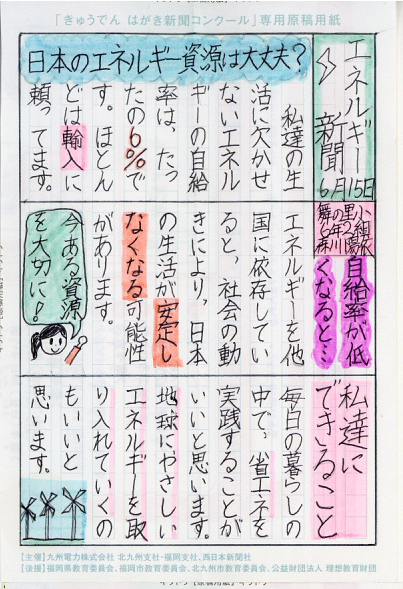 「きゅうでん はがき新聞コンクール」専用原稿用紙
エネルギー
新聞
6月15日
日本のエネルギー資源は大丈夫?
私達の生
活に欠かせ
ないエネル
ギーの自給
率は、たっ
たの6%で
す。ほとん
どは輸入に
頼ってます。
自給率が低
くなると…
エネルギーを他
国に依存してい
ると、社会の動
きにより、日本
の生活が安定し
なくなる可能性
があります。
今ある資源
を大切に!
私達に
できること
毎日の暮らしの
中で、省エネを
実践することが
いいと思います。
地球にやさしい
エネルギーを取
り入れていくの
もいいと
思います。
【主催】九州電力株式会社 北九州支社・福岡支社、西日本新聞社
【後援】福岡県教育委員会、福岡市教育委員会、北九州市教育委員会、公益財団法人 理想教育財団